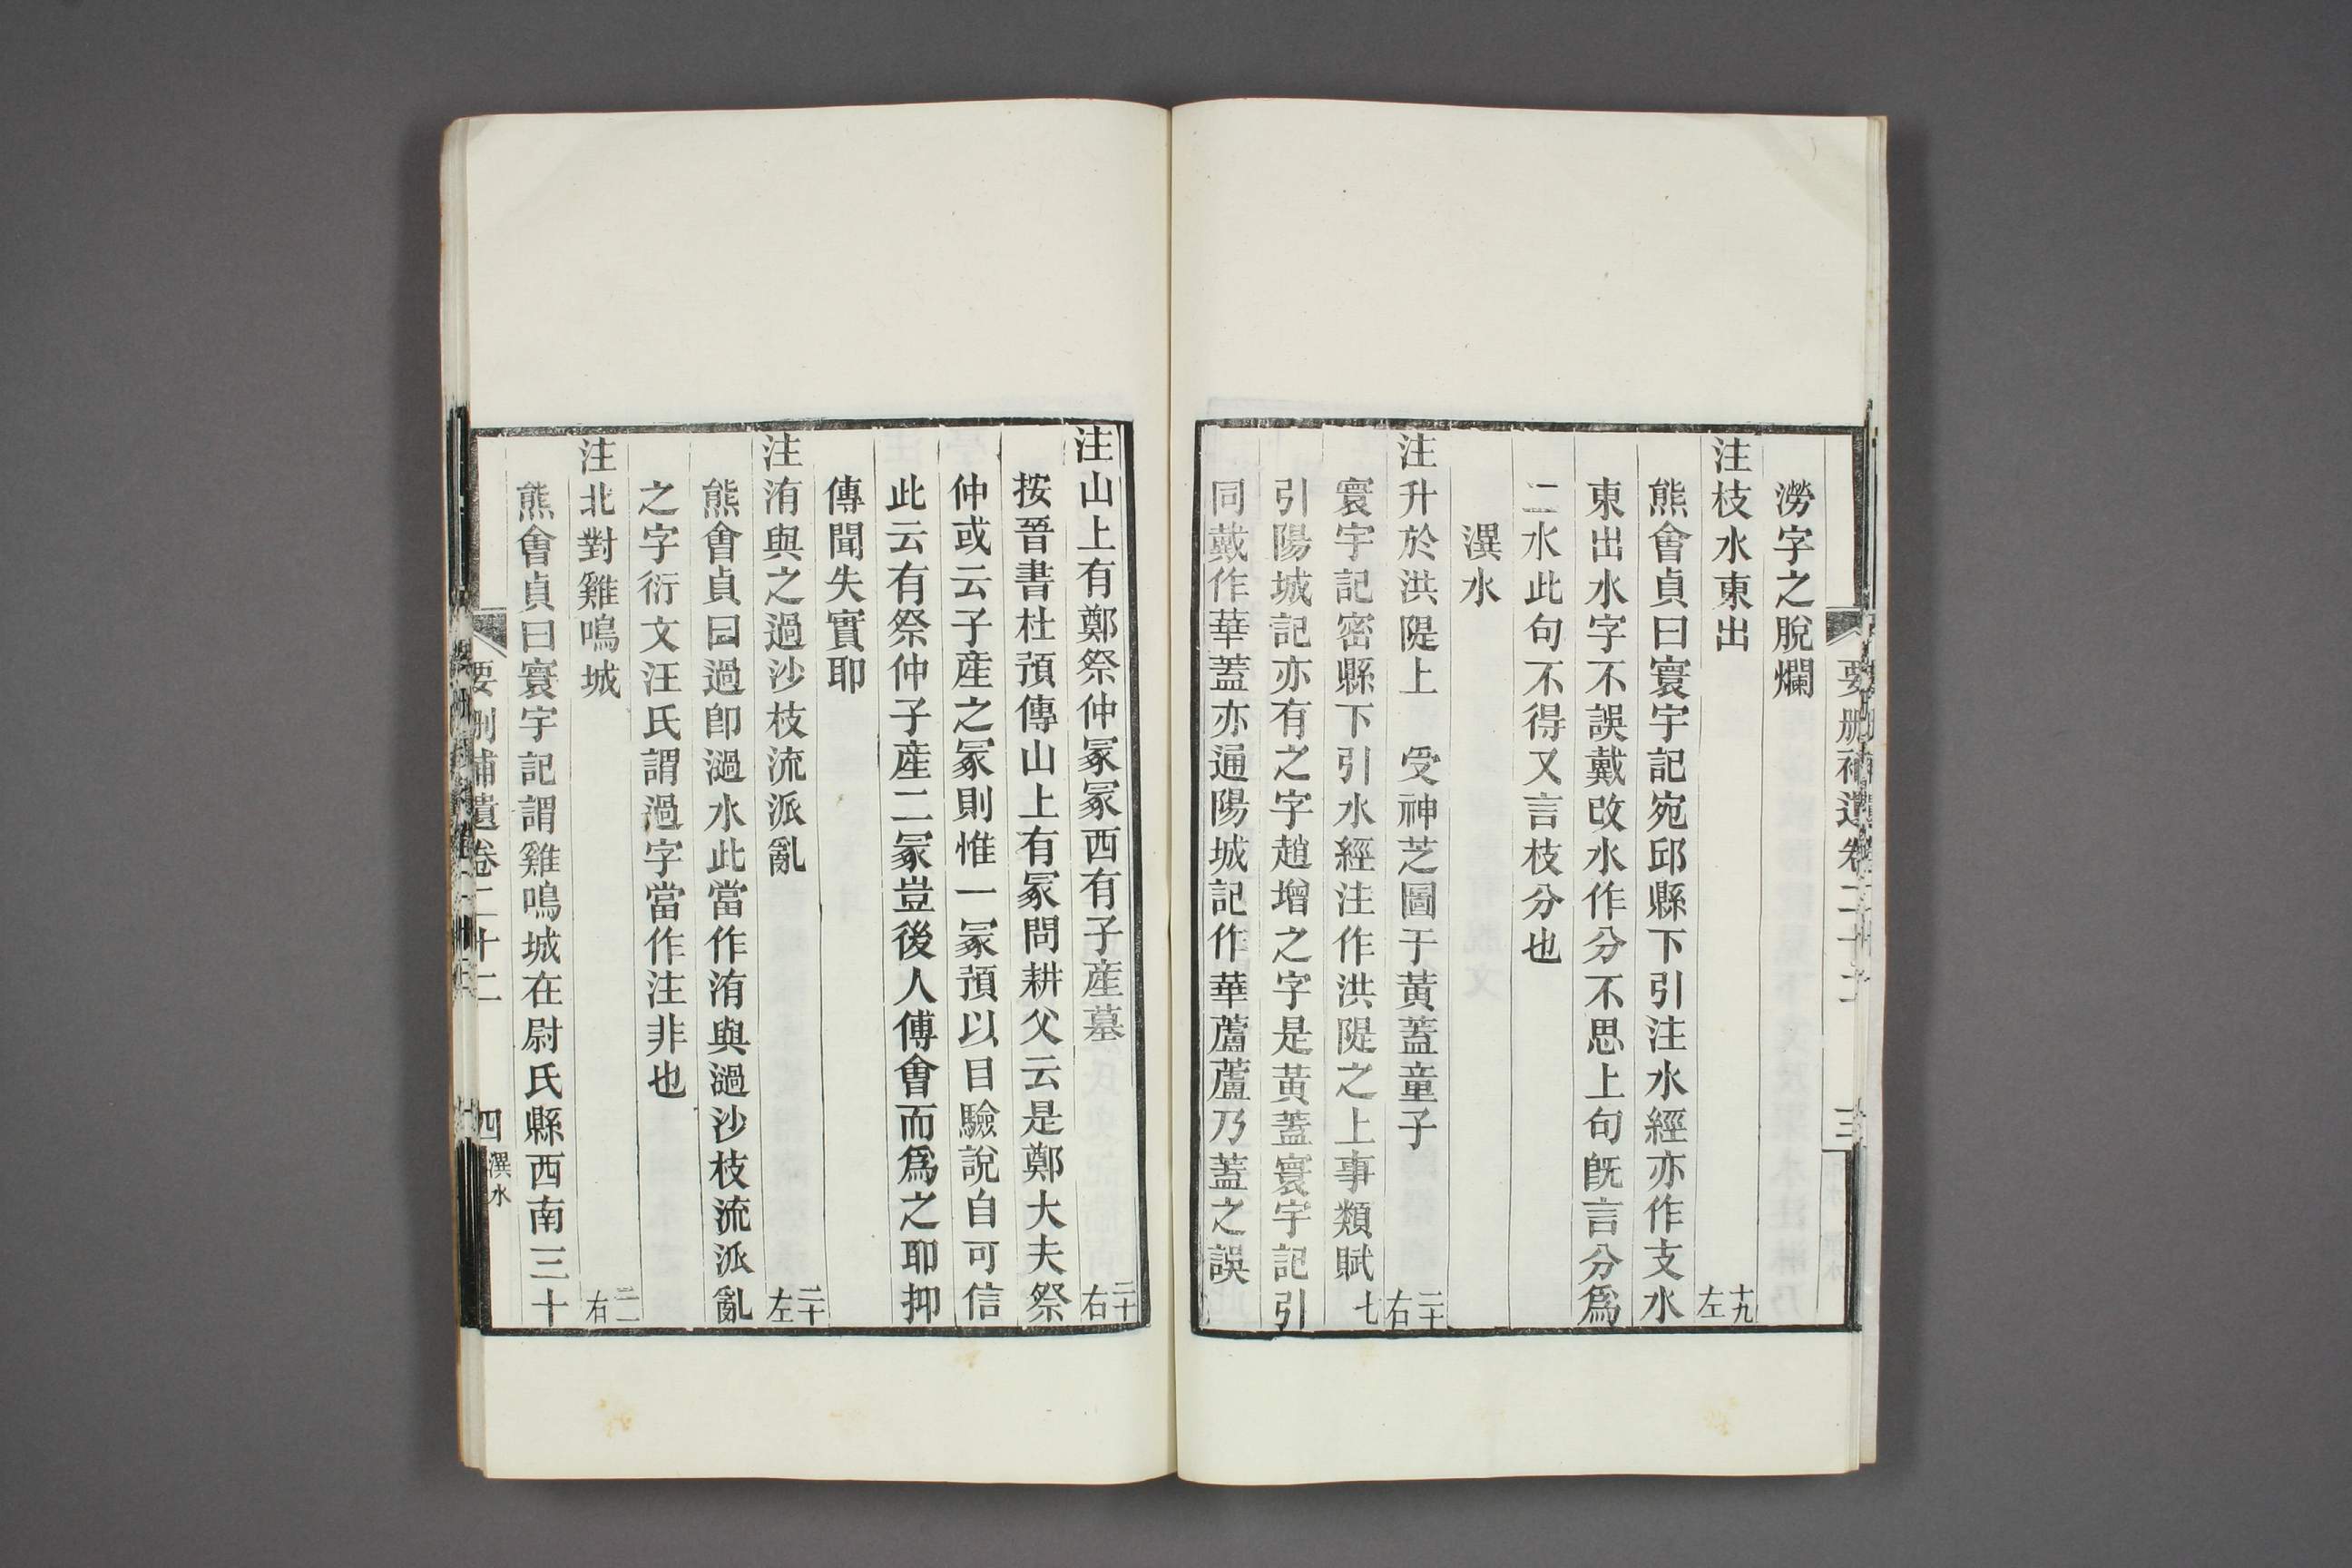 澇字之脫爛
注枝水東出 十九左
熊會貞曰寰宇記宛邱縣下引注水經亦作支水
東出水字不誤戴改水作分不思上句既言分爲
二水此句不得又言枝分也
潩水
注升於洪隄上 受神芝圖于黃蓋童子 二十右
寰宇記密縣下引水經注作洪隄之上事類賦七
引陽城記亦有之字趙增之字是黃蓋寰宇記引
同戴作華蓋亦通陽城記作華蘆蘆乃蓋之誤
注山上有鄭祭仲冢冢西有子產墓 二十右
按晉書杜預傳山上有冢問耕父云是鄭大夫祭
仲或云子產之冢則惟一冢預以目驗說自可信
此云有祭仲子產二冢豈後人傅會而爲之耶抑
傳聞失實耶
注洧與之過沙枝流派亂 二十左
熊會貞曰過卽濄水此當作洧與濄沙枝流派亂
之字衍文汪氏謂過字當作注非也
注北對雞鳴城 二一右
熊會貞曰寰宇記謂雞鳴城在尉氏縣西南三十
要刪補遺卷二十二 四 潩水